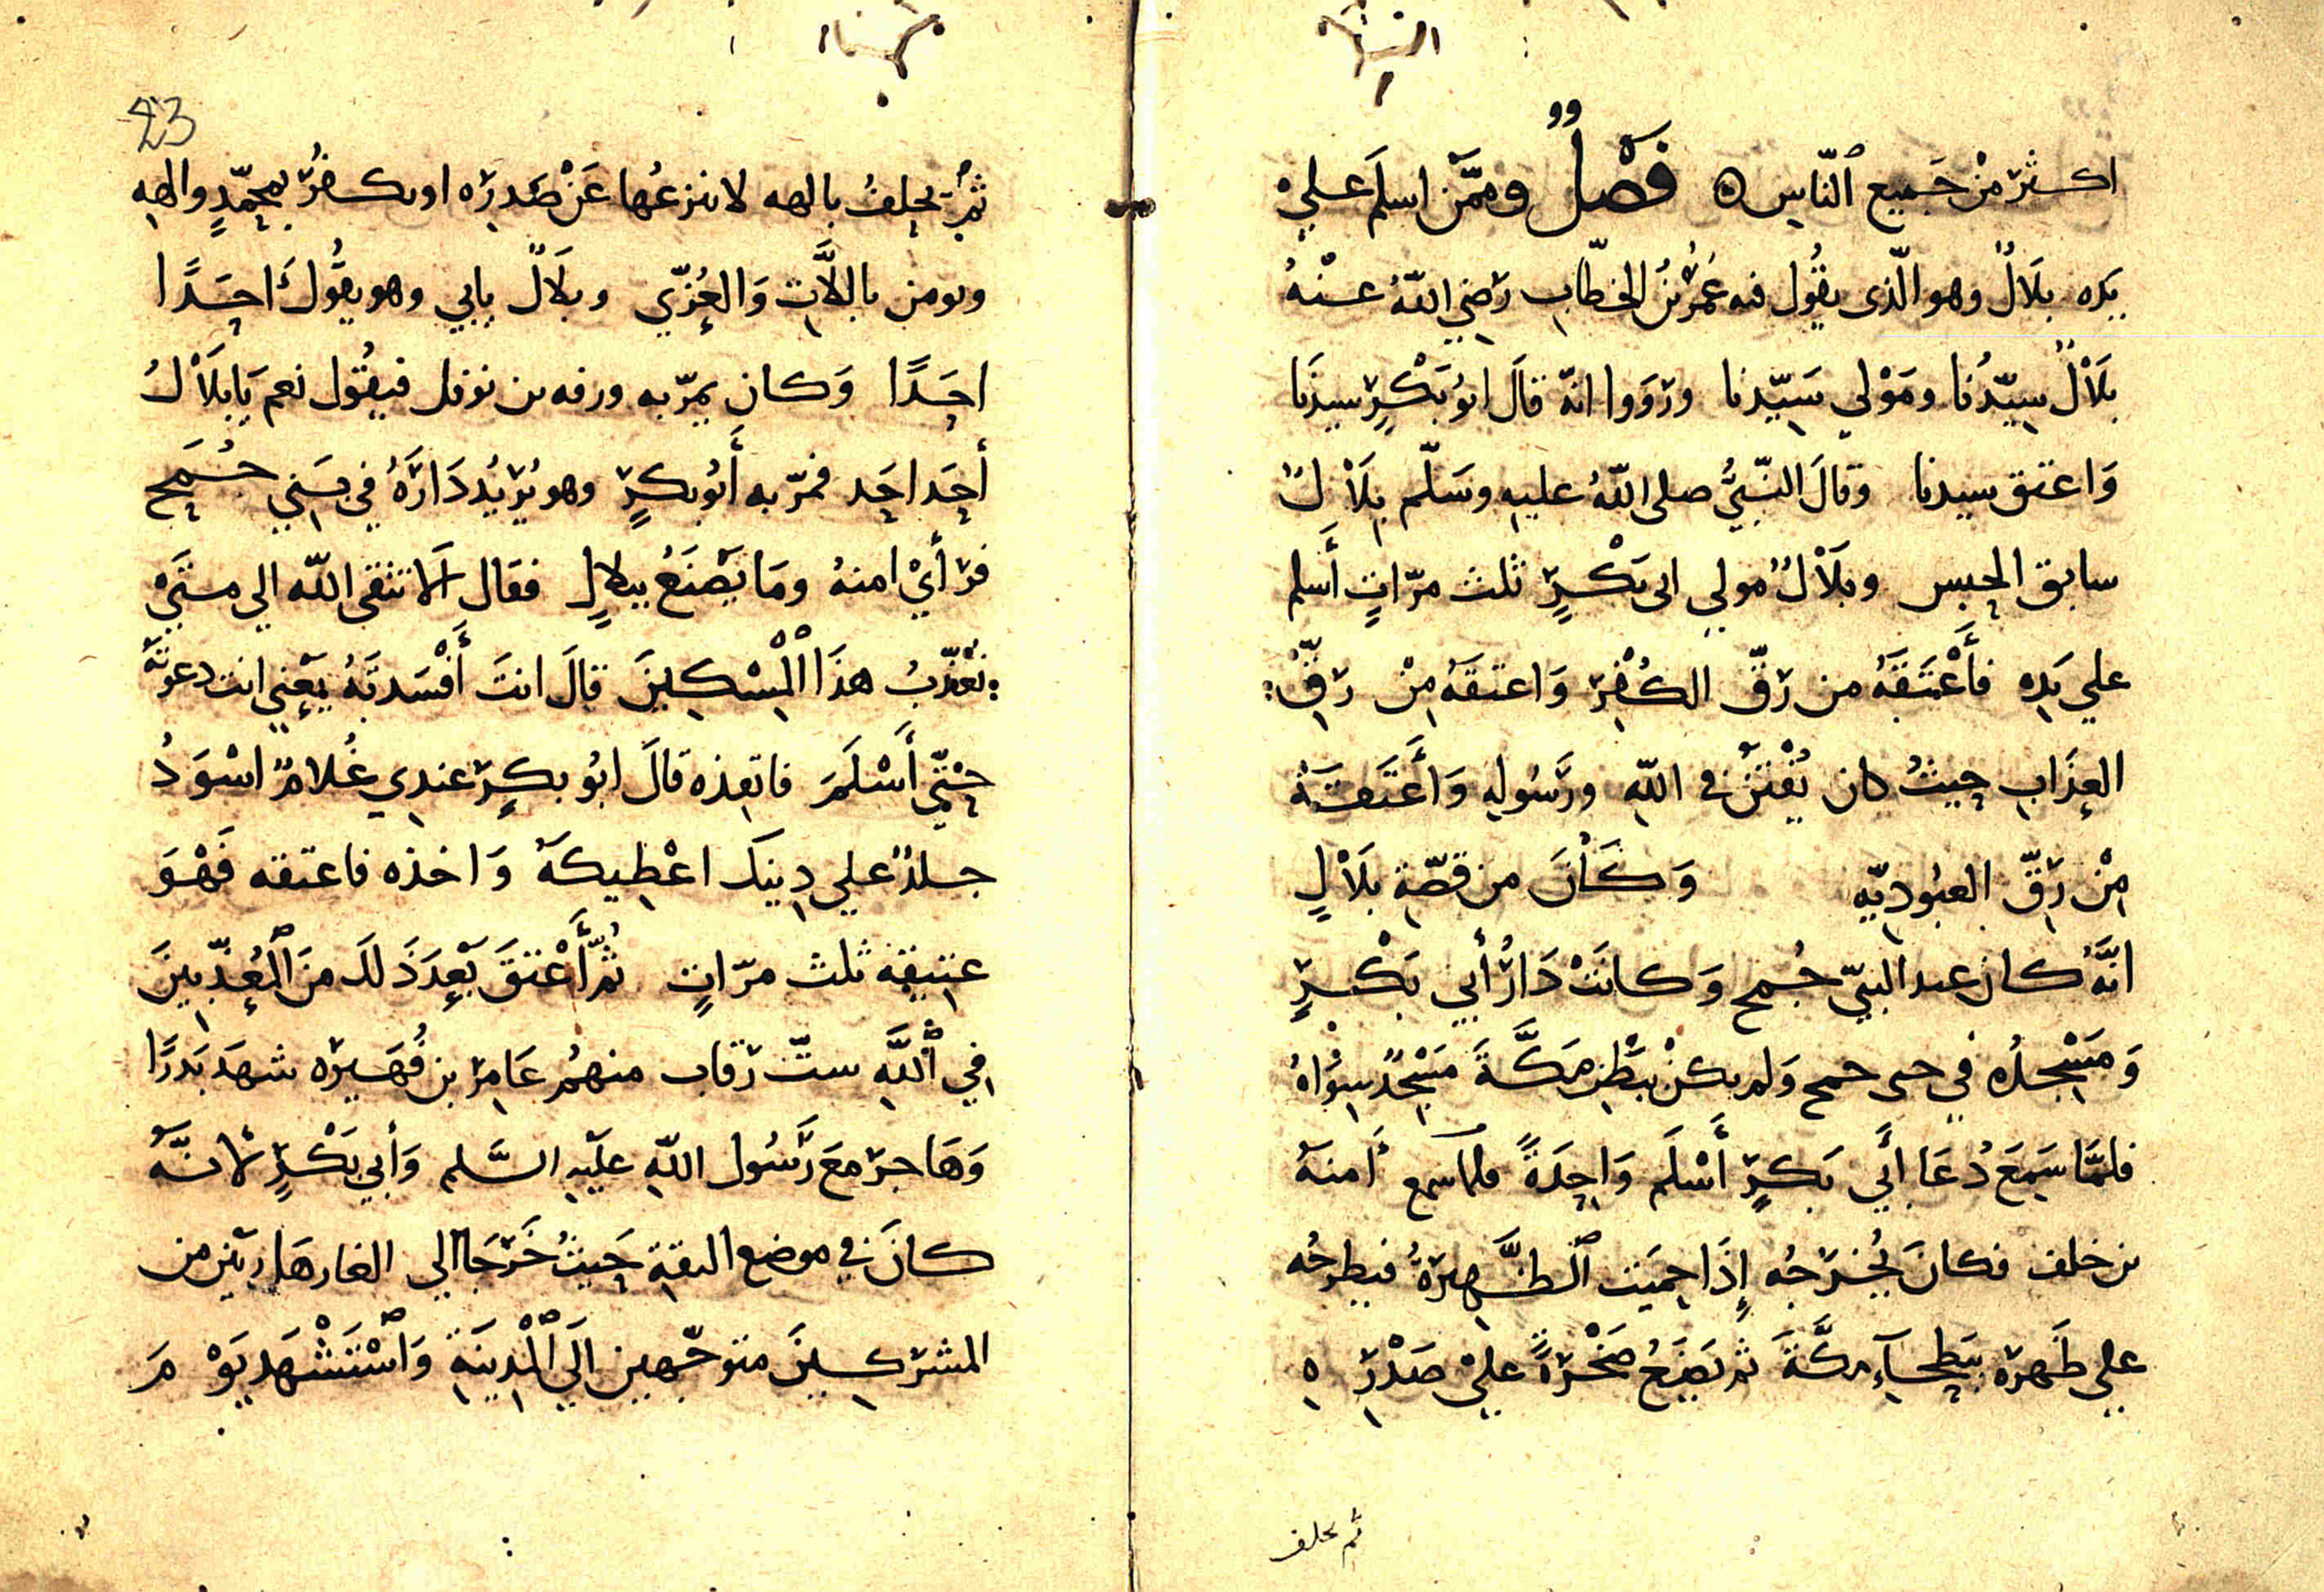 اكثر من جَميع ٱلنّاس ه فَصْلٌ وممّن اسلَم عَلي
يَده بلَالٌ وهو الّذى يقُول فيه عُمَرُ بنُ الخطّاب رَضي اللّهُ عنْهُ
بلَالٌ سيّدُنا ومَوْلي سَيّدنا ورَوَوا انّه قالَ ابُو بَكْرٍ سيدنَا
وَاعتق سيدنا وقالَ النّبيُّ صلى اللّهُ عليه وسَلّم بلَالٌ
سابق الحبس وبلَالٌ مولي ابى بَكْرٍ ثلث مرّاتٍ أَسلم
علي يَدِه فأَعْتَقَهُ من رَقّ الكُفْرِ وَاعتقَهُ مِنْ رَقِّ
العذَابِ حيثُ كان يُفْتَنُ في اللّهِ ورَسُولِهِ وَأَعْتَقَهُ
مِنْ رَقِّ العبُودِيّه وَكَانَ من قصّةِ بلَالٍ
انَّهُ كان عبد البنيّ جُمح وَكانَتْ دَارُ أَبي بَكْرٍ
وَمَسْجدُه في حى جمح وَلم يكنْ ببَطْنِ مَكَّةَ مَسْجِدٌ سِوَاهُ
فلمَّا سَمِعَ دُعَا أَبي بَكرٍ أَسْلَم وَاحِدَةً فلما سمع أمنهُ
بن خلف فكانَ يُخْرَجُه إِذَا حمِيَت ٱلظَّهِيرَةُ فيطرحُه
علي ظَهرَه ببَطِحَآءِ مكَّةَ ثم يَضَعُ صَخْرَةً عليْ صَدْرِه
ثم يحلف
23
ثُمّ يحلِفُ بالهه لا ينزعُها عَنْ صَدرَه او يكفُرُ بمحمّدٍ والهِه
ويومن باللَّاتِ وَالعُزّي وبلَالٌ يابي وهو يقُولُ احَدًا
احَدًا وَكان يمرّ به ورقه بن نوفل فيقُول نعم يَا بلَالُ
أَحَد احَد فمرّ به أَبُو بكرٍ وهو يُريْدُ دَارَهُ في بَني جُمَح
فرَأيْ امنهُ ومَا يَصْنَعُ ببلالٍ فقال الا تتقي اللّه الي متيْ
تُعَذّبُ هذَا ٱلْمِسْكِينَ قالَ انتَ أَفْسَدتَهُ يَعْنِي انت دعوتَهُ
حتّي أَسْلَمَ فانقذه قالَ ابُو بكرٍ عندِي غُلامٌ اسْوَدُ
جلدٌ علي دِينِكَ اعْطِيكهُ وَاخذه فاعتقه فَهْوَ
عتيقِه ثلث مرّاتٍ ثُمَّ أَعْتقَ بَعْدَ ذَلكَ منَ ٱلْمُعَذّبِينَ
فِي ٱللَّهِ ستّ رَقاب منهُم عَامِرَ بن فُهَيرَه شهدَ بَدرًا
وَهَاجرَ معَ رَسُول اللّهِ علَيهِ السَّلم وَأَبي بَكْرٍ لانَّهُ
كانَ في موضع الثقةِ حَيثُ خَرَجَا الي الغار هَاربَين من
المشركِينَ متوجّهين إلَي ٱلْمدِينَةِ وَٱسْتَشْهَد يَوْ مَ